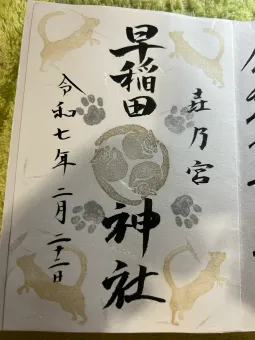 㐂乃宮
早稲田神社
令和七年二月二十二日